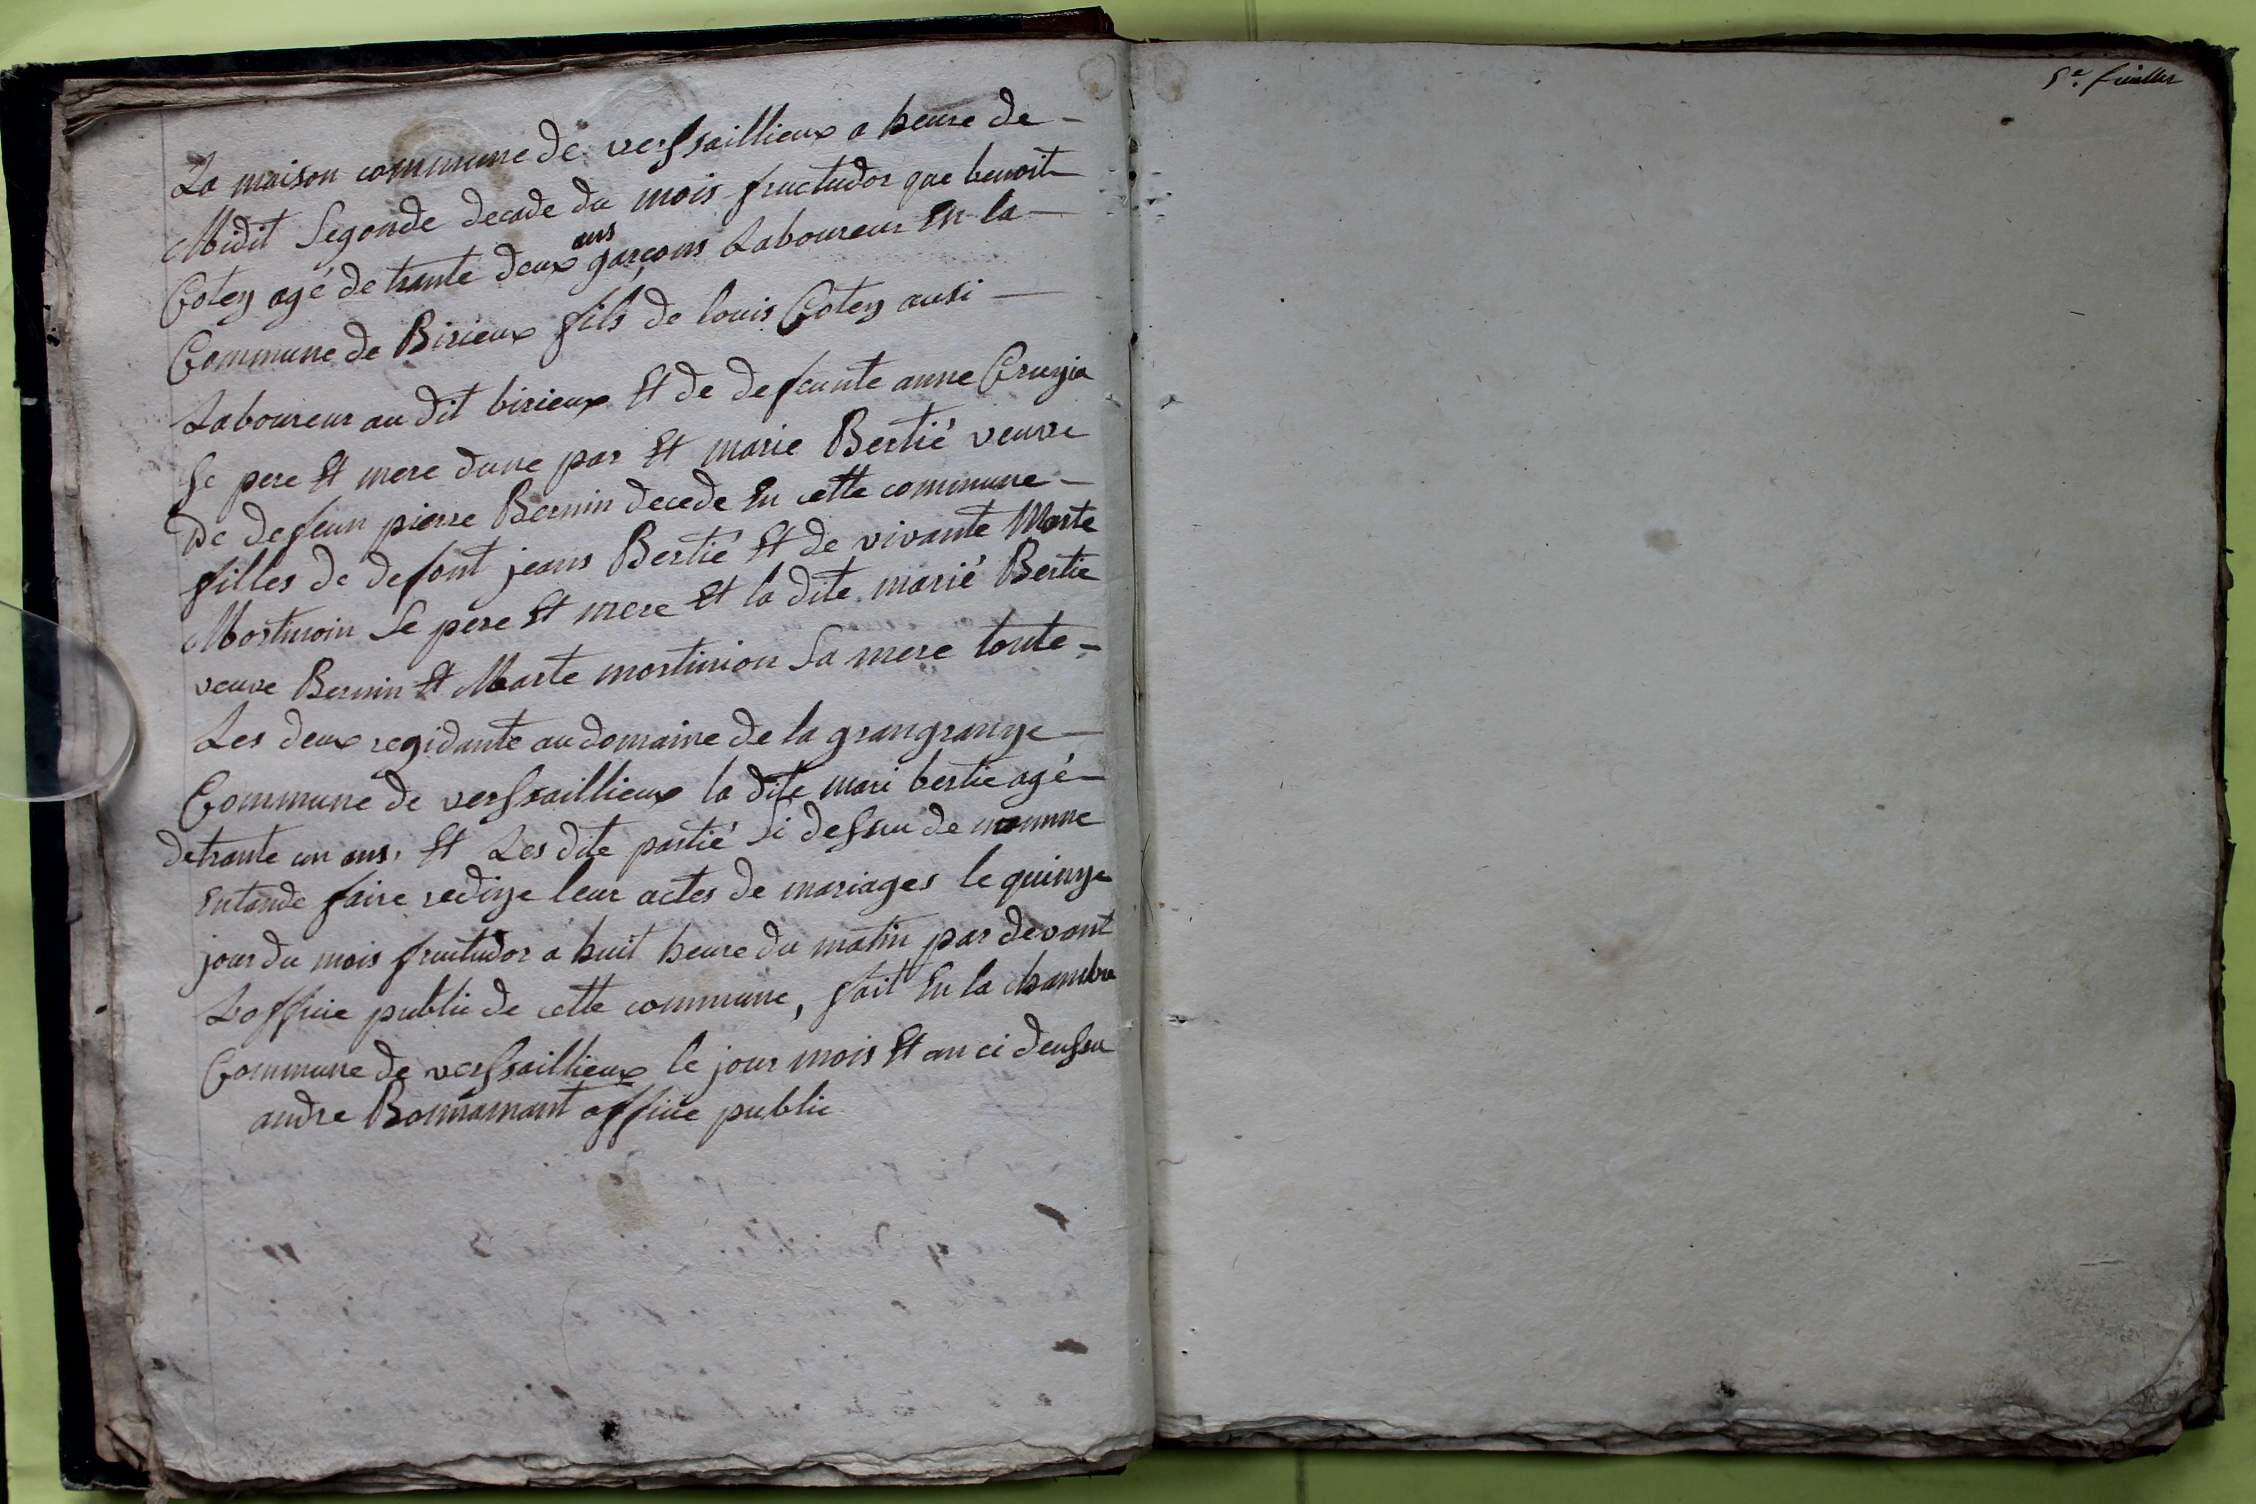 La maison commune de verssaillieux a heure de -
Midit Segonde decade du mois fructudor que benoit
Cotey agé de trante deux ans garçons Laboureur En la -
Commune de Birieux fils de louis Cotey ausi -
Laboureur au dit birieux Et de defunte anne Cruyia
Se pere Et mere dune par Et marie Bertié veuve
de defeun pierre Bernin decede En cette commune -
filles de defont jeans Bertié Et de vivante Marte
Mortinoin Se pere Et mere Et la dite marié Bertie
veuve Bernin Et Marte mortinion Sa mere toute -
Les deux regidante au domaine de la grangrange -
Commune de verssaillieux la dite mari bertie agé -
de trante un ans, Et Les dite partié Si dessu de nomme
Entande faire redige leur actes de mariages le quinze
jour du mois fructudor a huit heure du matin par devant
Loffice public de cette commune, fait En la chambre
Commune de verssaillieux le jour mois Et an ci deussu
andre Bonnamant office public
5e. feuillet